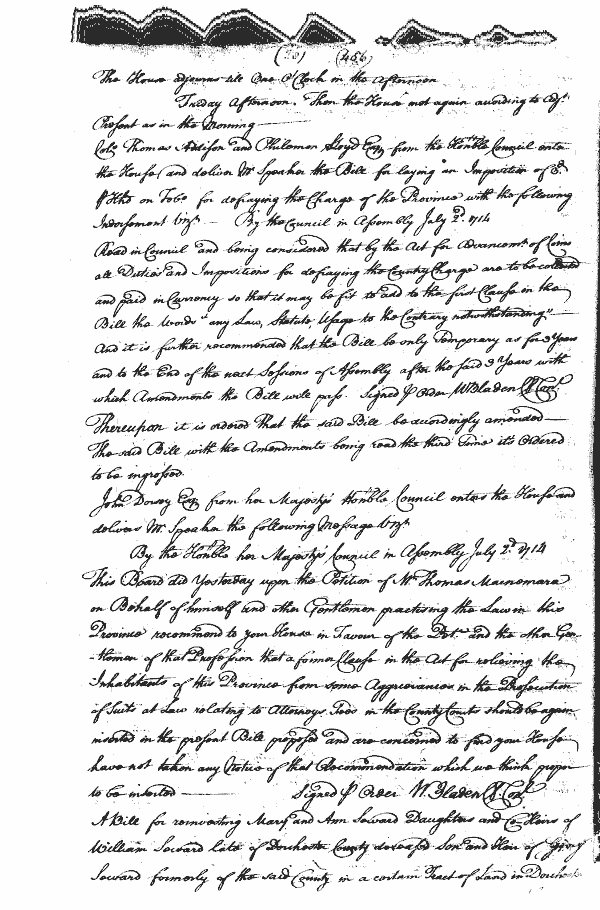 (456)
The House adjourns till One O'Clock in the Afternoon
Friday Afternoon. Then the House met again according to Adjt.
Present as in the Morning
Colo Thomas Addison and Philemon Lloyd Esqr from the Honble Council enter
the House and deliver Mr Speaker the Bill for laying an Imposition of
on Tobo for defraying the Charge of the Province with the following
Indorsement Vizt. By the Council in Assembly July 2d. 1714
Read in Council and being considered that by the Act for Advancemt of Coins
all Duties and Impositions for defraying the County Charge are to be collected
and paid in Currency so that it may be fit to add to the first Clause in the
Bill the Words "any Law, Statute, Usage to the Contrary notwithstanding"
And it is further recommended that the Bill be only Temporary as for 3 Years
and to the End of the next Sessions of Assembly after the said 3 Years with
which Amendments the Bill will pass. Signed p Order W Bladen Cl Coun
Thereupon it is ordered that the said Bill be accordingly amended
The said Bill with the Amendments being read the third Time it's Ordered
to be ingrossed.
John Dorsey Esqr from her Majestys Honble Council enters the House and
delivers Mr Speaker the following Message Vizt
By the Honble her Majestys Council in Assembly July 2d. 1714
This Board did Yesterday upon the Petition of Mr Thomas Macnemara
on Behalf of himself and other Gentlemen practising the Law in this
Province recommend to your House in Favour of the Petr. and the other Gen-
-tlemen of that Profession that a former Clause in the Act for relieving the
Inhabitants of this Province from some Aggrievances in the Prosecution
of Suits at Law relating to Attorneys Fees in the County Courts should be again
inserted in the present Bill proposed and are concerned to find your House
have not taken any Notice of that Recommendation which we think proper
to be inserted Signed p Order W. Bladen Cl Coun
A Bill for reinvesting Mary and Ann Soward Daughters and Co-Heirs of
William Soward late of Dorchester County deceased Son and Heir of
Soward formerly of the said County in a certain Tract of Land in Dorchest